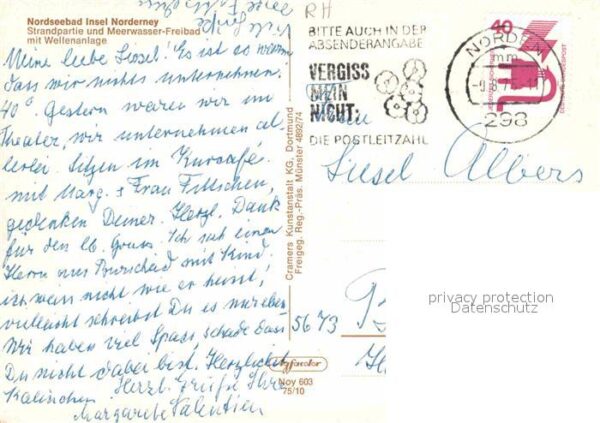 Nordseebad Insel Norderney
Strandpartie und Meerwasser-Freibad
mit Wellenanlage
Viele Grüße
Meine liebe Liesel! Es ist so warm
dass wir nichts unternehmen.
40°. Gestern waren wir im
Theater, wir unternehmen al-
lerlei. Sitzen im Kurcafé
mit Marg. + Frau
gedenken Deiner. Herzl. Dank
für den lb. Gruss. Ich sah einen
Herrn aus mit Kind.
ich weiss nicht wie er heisst,
vielleicht schreibst Du es mir eben
Wir haben viel Spass, schade dass
Du nicht dabei bist. Herzlichst
Herzl. Grüße Ihre
Margarete Valentien
Cramers Kunstanstalt KG, Dortmund
Freigeg. Reg.-Präs. Münster 4892/74
RH
BITTE AUCH IN DER
ABSENDERANGABE
VERGISS
MEIN
NICHT:
DIE POSTLEITZAHL
NORDEN
mm
298
40
DEUTSCHE BUNDESPOST
Frau
Liesel Albers
5673
privacy protection
Datenschutz
Noy 603
75/10